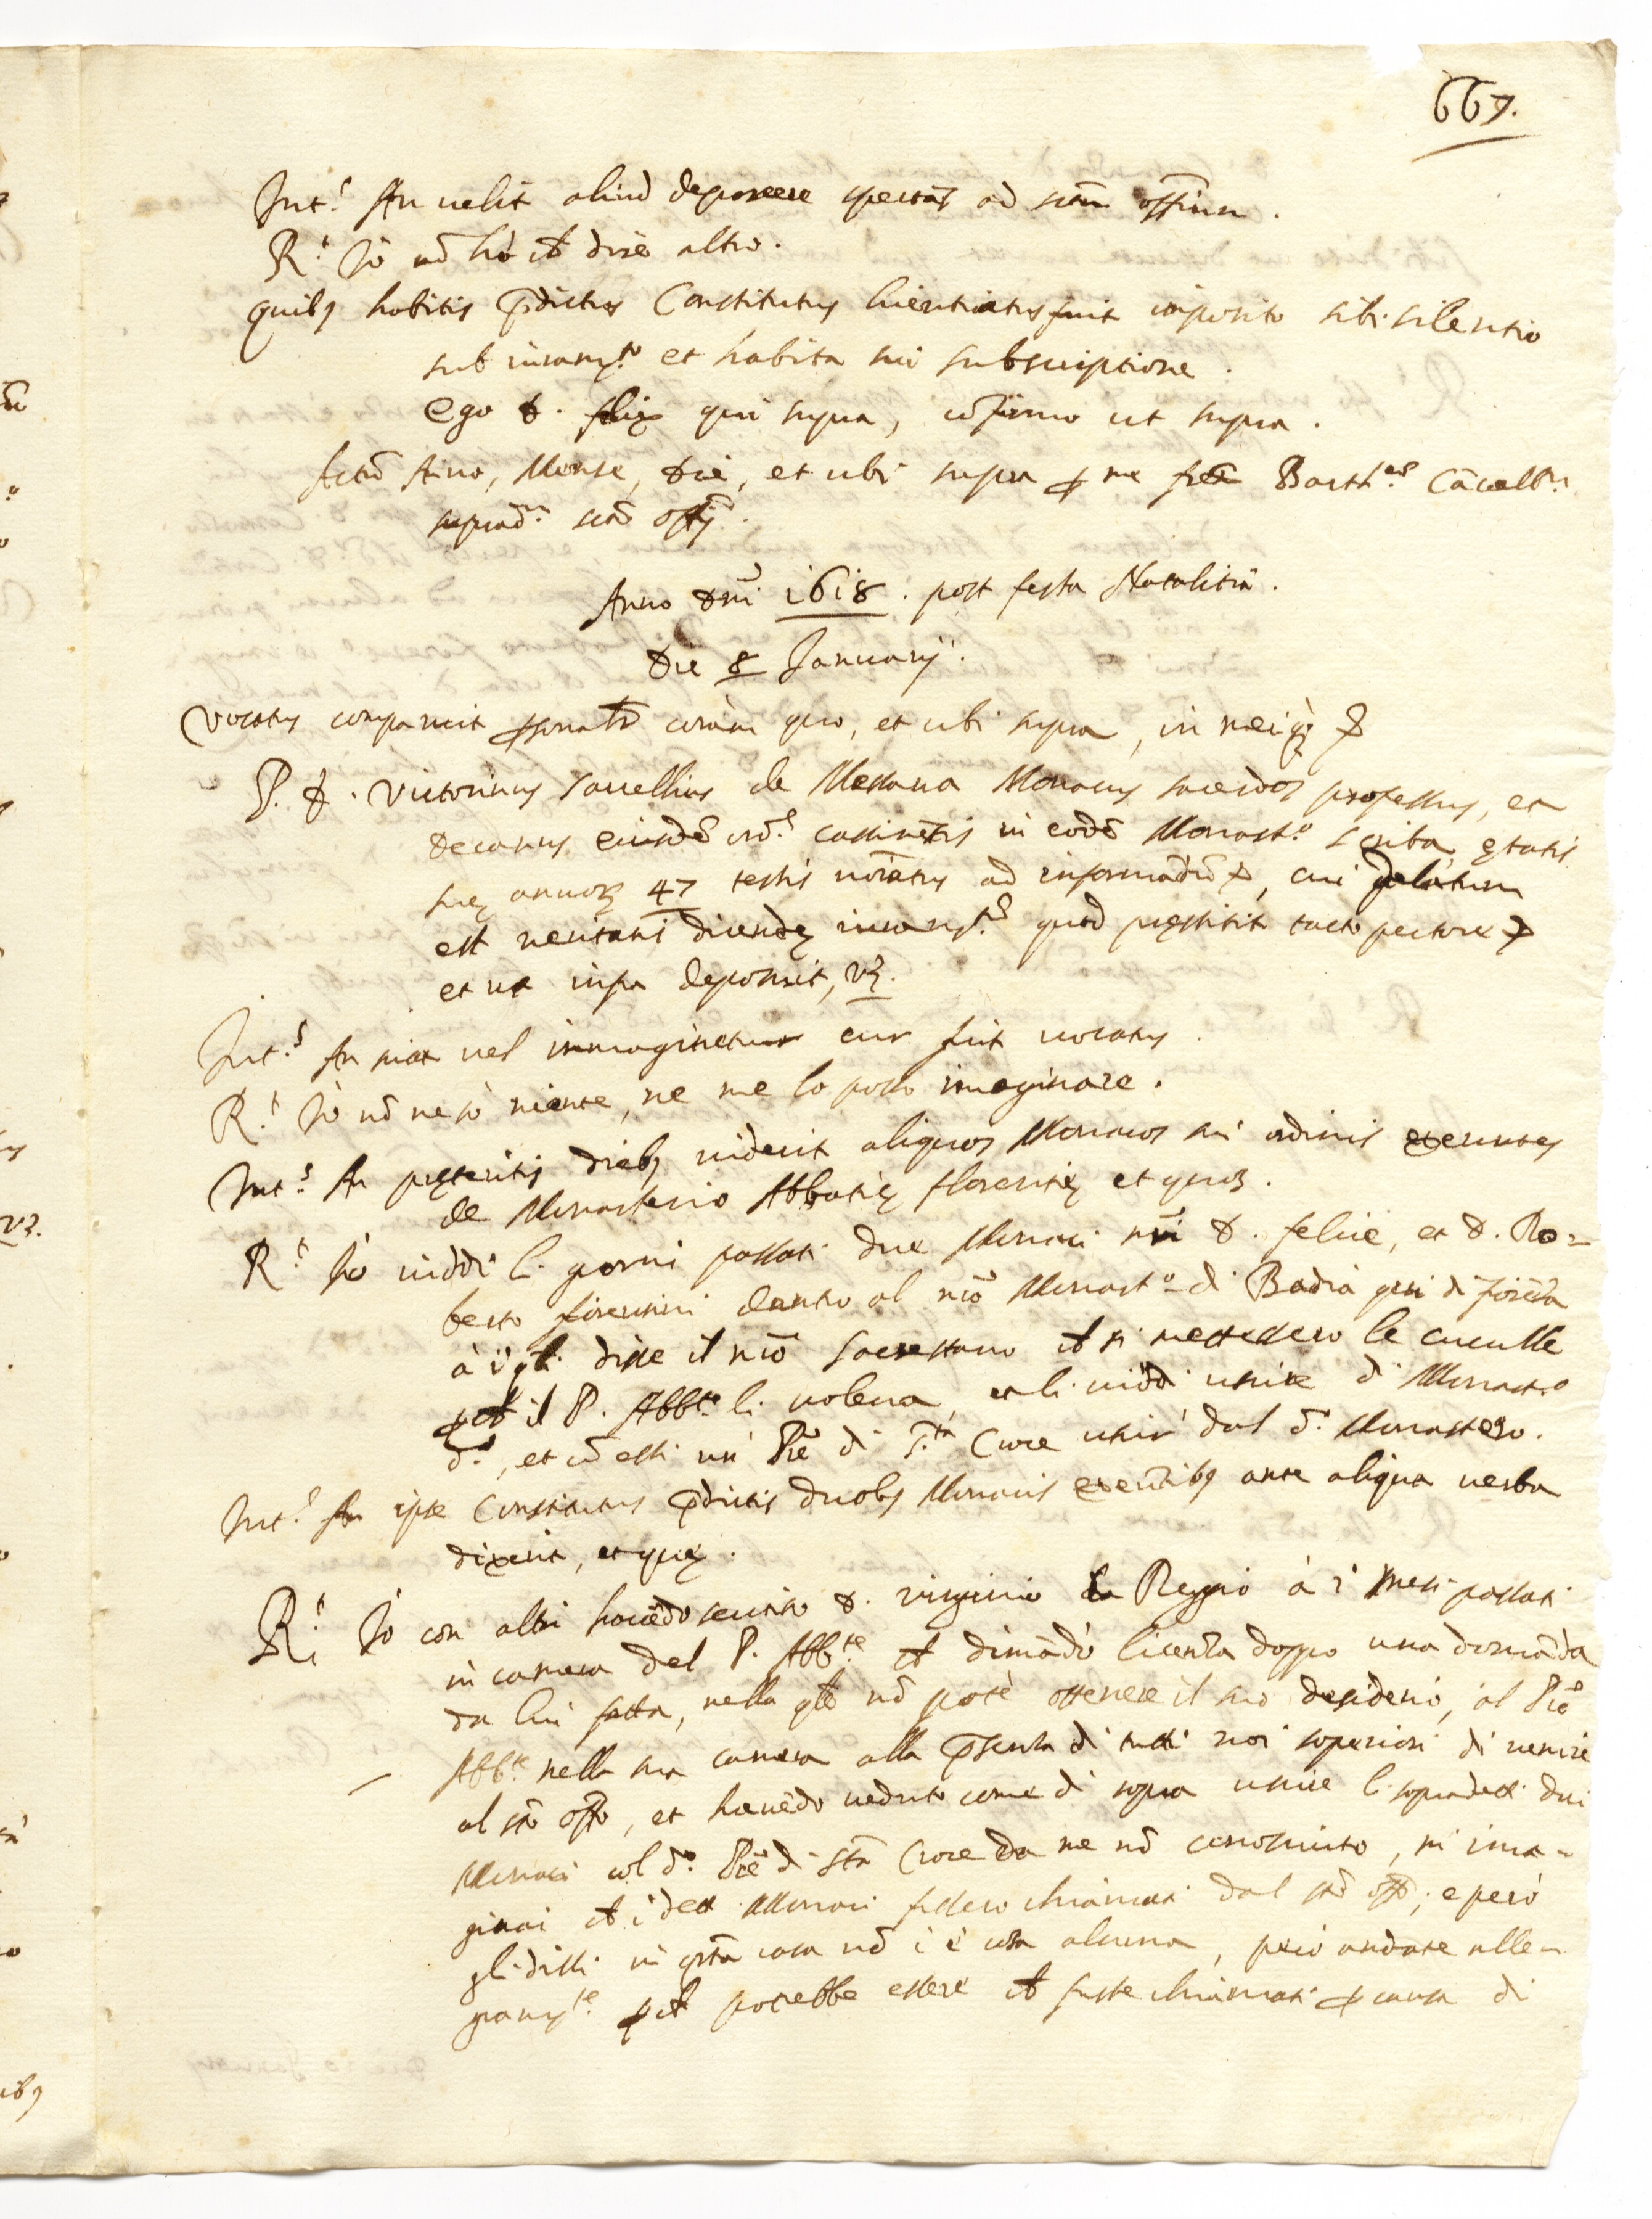 667.
Int.s An velit aliud deponere spectās ad sctm offium.
R.t Io nō hò ch dire altro.
Quibꝰ habitis pdictus Constitutus licentiatus fuit imposito sibi silentio
sub iuram.to et habita sui subscriptione.
Ego D. felix qui supra, cōfirmo ut supra.
Actū Anno, Mense, Die, et ubi supra p me frem Barth.eū Cācell.m
suprad.m scti offij.
Anno Dni 1618. post festa Natalitia.
Die 8 Januarij.
Vocatus comparuit psonalr coràm quo, et ubi supra, in meiq;
P. D. Victorinus de Messana Monacus sacerdos professus, et
Decanus eiusdē ord.s cassinēsis in eodē Monast.o scriba, ętatis
suę annorū 47 testis noīatus ad informādū, cui delatum
est veritatis dicendę iuram.to quod pręstitit tacto pectore
et ut infra deposuit, vz.
Int.s An sciat vel immaginetur cur fuit vocatus.
R.t Io nō ne sò niente, ne me lo posso imaginare.
Int.s An pręteritis diebꝰ viderit aliquos Monacos sui ordinis exeuntes
de Monasterio Abbatię florentię et quos.
R.t Io viddi li giorni passati due Monaci nri D. felice, et D. Ro=
berto fiorentini dentro al nrō Monast.o di Badia qui di fiorēza
à i qli disse il nrō sacrestano ch si mettessero le cuculle
pch il P. Abb.te li voleva, et li viddi uscire di Monast.o
d.o, et cō essi un' Pre di S.ta Croce uscir' dal d.o Monastero.
Int.s An ipse Constitutus pdictis duobꝰ Monacis exeūtibꝰ ante aliqua verba
dixerit, et quę.
R.t Io con altri havēdo sentito D. virginio da Reggio à i mesi passati
in camera del P. Abb.te ch dimādò licenza doppo una domāda
da lui fatta, nella qle nō potè ottenere il suo desiderio, al Pre
Abb.te nella sua camera alla psenza di tutti noi superiori di venire
al sto offo, et havēdo veduto come di sopra uscire li sopradetti dui
Monaci col d.o Pre di Sta Croce da me nō conosciuto, mi ima=
ginai ch i detti Monaci fussero chiamati dal sto offo; e però
gli dissi in qsta casa nō ci è cosa alcuna, però andate alle=
gram.te pch potrebbe essere ch fuste chiamati p causa di